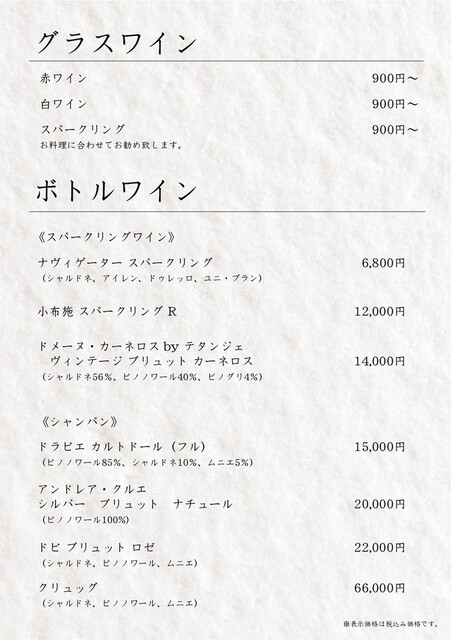 グラスワイン
赤ワイン 900円～
白ワイン 900円～
スパークリング 900円～
お料理に合わせてお勧め致します。
ボトルワイン
《スパークリングワイン》
ナヴィゲーター スパークリング 6,800円
（シャルドネ、アイレン、ドゥレッロ、ユニ・ブラン）
小布施 スパークリング R 12,000円
ドメーヌ・カーネロス by テタンジェ
ヴィンテージ ブリュット カーネロス 14,000円
（シャルドネ56％、ピノノワール40％、ピノグリ4％）
《シャンパン》
ドラピエ カルトドール（フル） 15,000円
（ピノノワール85％、シャルドネ10％、ムニエ5％）
アンドレア・クルエ
シルバー ブリュット ナチュール 20,000円
（ピノノワール100％）
ドビ ブリュット ロゼ 22,000円
（シャルドネ、ピノノワール、ムニエ）
クリュッグ 66,000円
（シャルドネ、ピノノワール、ムニエ）
※表示価格は税込み価格です。